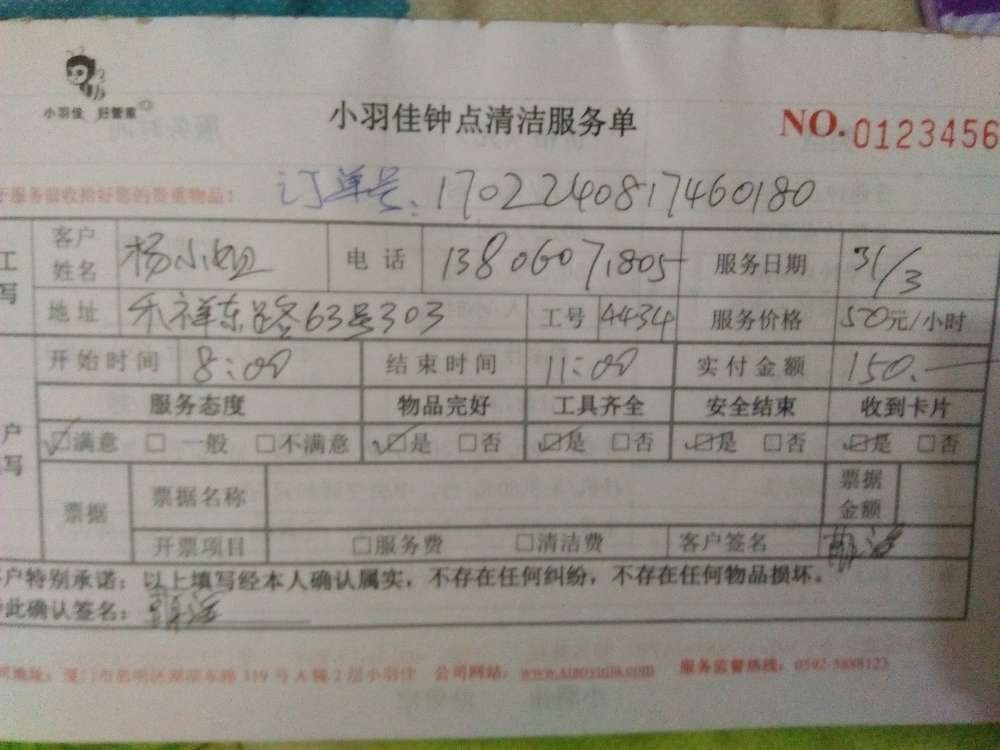 小羽佳 好管家
小羽佳钟点清洁服务单
NO. 0123456
服务前收拾好您的贵重物品！
订单号：1702240817460180
客户姓名 杨小姐 电话 13806071805 服务日期 31/3
地址 禾祥东路63号303 工号 4434 服务价格 50元/小时
开始时间 8:00 结束时间 11:00 实付金额 150.—
服务态度 物品完好 工具齐全 安全结束 收到卡片
☑满意 □一般 □不满意 ☑是 □否 ☑是 □否 ☑是 □否 ☑是 □否
票据 票据名称 票据金额
开票项目 □服务费 □清洁费 客户签名
户特别承诺：以上填写经本人确认属实，不存在任何纠纷，不存在任何物品损坏。
此确认签名：
地址：厦门市思明区湖滨东路319号A幢2层小羽佳 公司网站：www.xiaoyujia.com 服务监督热线：0592-5888123